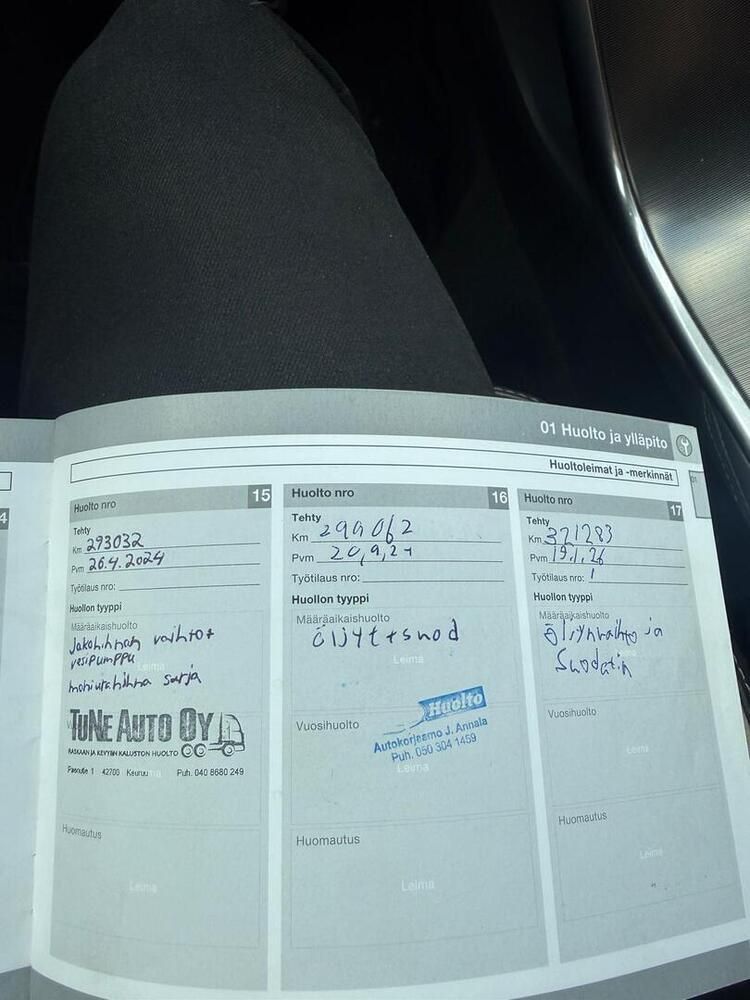 01 Huolto ja ylläpito
Huoltoleimat ja -merkinnät
01
4
Huolto nro 15
Tehty
Km 293032
Pvm 26.4.2024
Työtilaus nro:
Huollon tyyppi
Määräaikaishuolto
Jakohihnan vaihto +
vesipumppu
Leima
moniurahihna sarja
TUNE AUTO OY
RASKAAN JA KEVYEN KALUSTON HUOLTO
42700 Keuruu Puh. 040 8680 249
Huomautus
Leima
Huolto nro 16
Tehty
Km 299062
Pvm 20,9,24
Työtilaus nro:
Huollon tyyppi
Määräaikaishuolto
öljyt+suod
Leima
Vuosihuolto
Huolto
Autokorjaamo J. Annala
Puh. 050 304 1459
Leima
Huomautus
Leima
Huolto nro 17
Tehty
Km 321283
Pvm 19.1.26
Työtilaus nro:
Huollon tyyppi
Määräaikaishuolto
öljynvaihto ja
Suodatin
Vuosihuolto
Leima
Huomautus
Leima